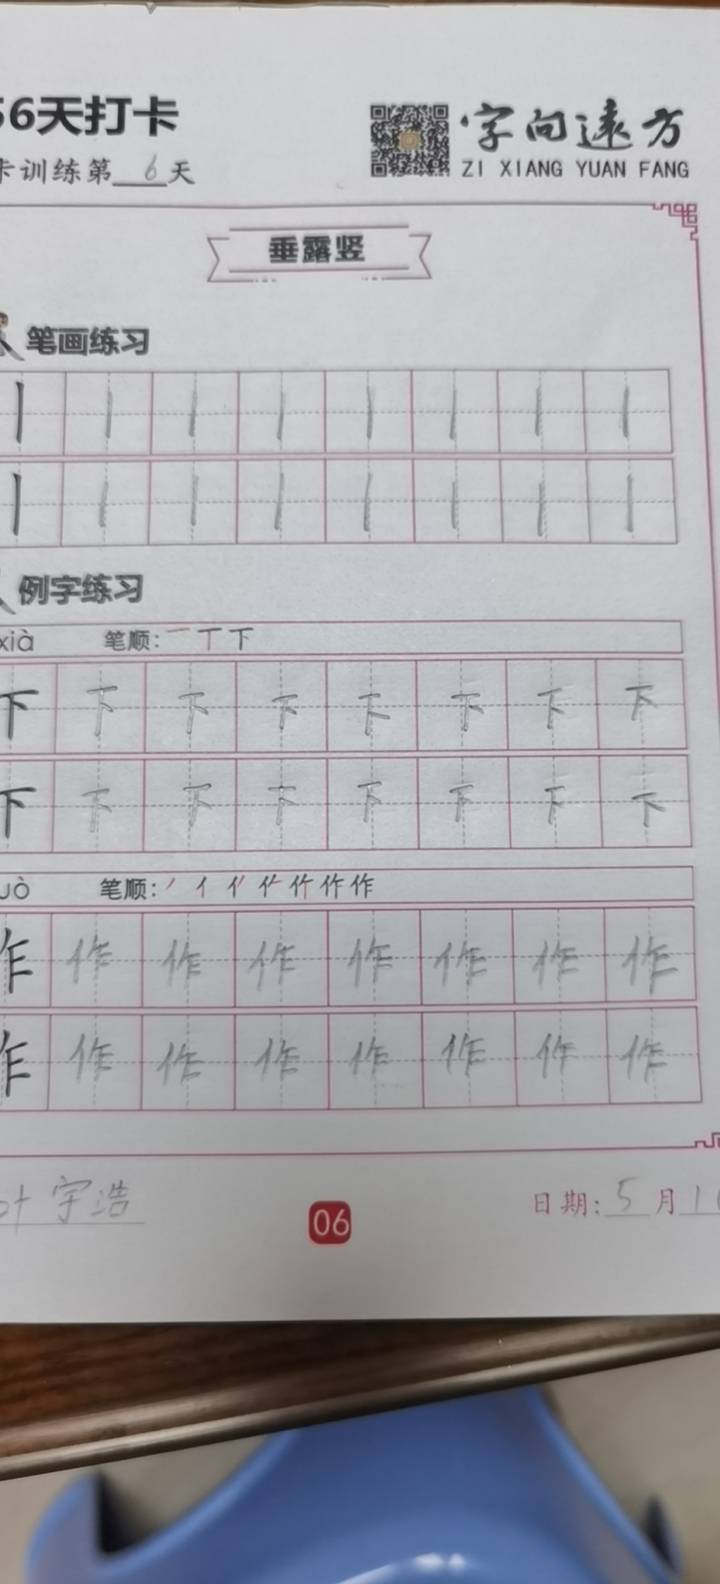 56天打卡
字向远方
卡训练第 6 天
ZI XIANG YUAN FANG
垂露竖
笔画练习
丨 丨 丨 丨 丨 丨 丨 丨
丨 丨 丨 丨 丨 丨 丨 丨
例字练习
xià 笔顺: 一 丅 下
下 下 下 下 下 下 下 下
下 下 下 下 下 下 下 下
uò 笔顺: 丿 亻 作 作
作 作 作 作 作 作 作 作
作 作 作 作 作 作 作 作
叶宇浩
06
日期: 5 月 1